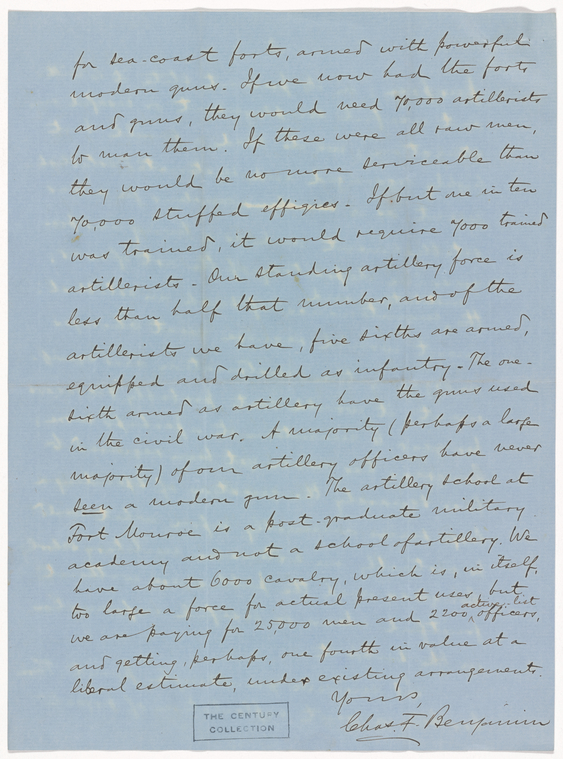 for sea-coast forts, armed with powerful
modern guns. If we now had the forts
and guns, they would need 70,000 artillerists
to man them. If these were all raw men,
they would be no more serviceable than
70,000 stuffed effigies. If but one in ten
was trained, it would require 7000 trained
artillerists. Our standing artillery force is
less than half that number, and of the
artillerists we have, five sixths are armed,
equipped and drilled as infantry. The one-
sixth armed as artillery have the guns used
in the civil war. A majority (perhaps a large
majority) of our artillery officers have never
seen a modern gun. The artillery school at
Fort Monroe is a post-graduate military
academy and not a school of artillery. We
have about 6000 cavalry, which is, in itself,
too large a force for actual present uses, but
active list
we are paying for 25,000 men and 2200 officers,
and getting, perhaps, one fourth in value at a
liberal estimate, under existing arrangements.
Yours
Chas. F. Benjamin
THE CENTURY
COLLECTION